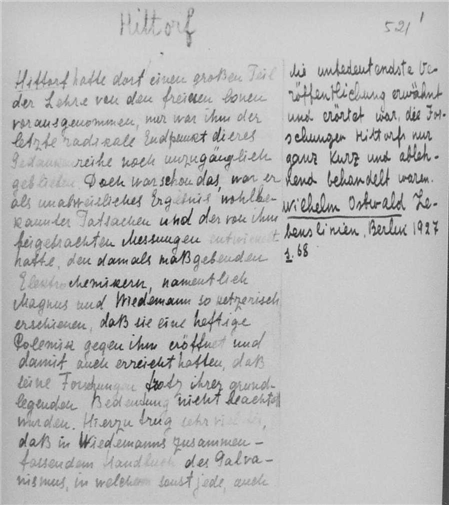 Hittorf
521
Hittorf hatte dort einen großen Teil
der Lehre von den freien Ionen
vorausgenommen, nur war ihm der
letzte radikale Endpunkt dieser
Gedankenreihe noch unzugänglich
geblieben. Doch war schon das, was er
als unabweisliches Ergebnis wohlbe-
kannter Tatsachen und der von ihm
beigebrachten Messungen entwickelt
hatte, den damals maßgebenden
Elektrochemikern, namentlich
Magnus und Wiedemann so ketzerisch
erschienen, daß sie eine heftige
Polemik gegen ihn eröffnet und
damit auch erreicht hatten, daß
seine Forschungen trotz ihrer grund-
legenden Bedeutung nicht beachtet
wurden. Hierzu trug sehr viel bei,
daß in Wiedemanns zusammen-
fassendem Handbuch des Galva-
nismus, in welchem sonst jede, auch
die unbedeutendste Ve-
röffentlichung erwähnt
und erörtert war, die For-
schungen Hittorfs nur
ganz kurz und ableh-
nend behandelt waren.
Wilhelm Ostwald Le-
benslinien, Berlin 1927
S. 68